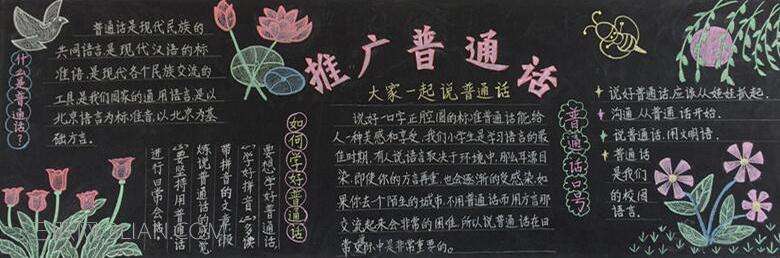 什么是普通话？
普通话是现代民族的
共同语言是现代汉语的标
准语.是现代各个民族交流的
工具是我们国家的通用语言.是以
北京语言为标准音.以北京为基
础方言.
推广普通话
大家一起说普通话
如何学好普通话
要想学好普通话
(1)学好拼音(2)多读
带拼音的文章
炼说普通话的感觉
(3)要坚持用普通话
进行日常会话
说好一口字正腔圆的标准普通话能给
人一种美感和享受,我们小学生是学习语言的最
佳时期,有人说语言取决于环境中,那么耳濡目
染,即使你的方言再重,也会逐渐的受感染.如
果你去一个陌生的城市,不用普通话而用方言那
交流起来会非常的困难.所以说普通话在日
常交际中是非常重要的。
普通话口号
说好普通话,应该从娃娃抓起.
沟通从普通话开始.
说普通话.用文明语.
普通话
是我们
的校园
语言.